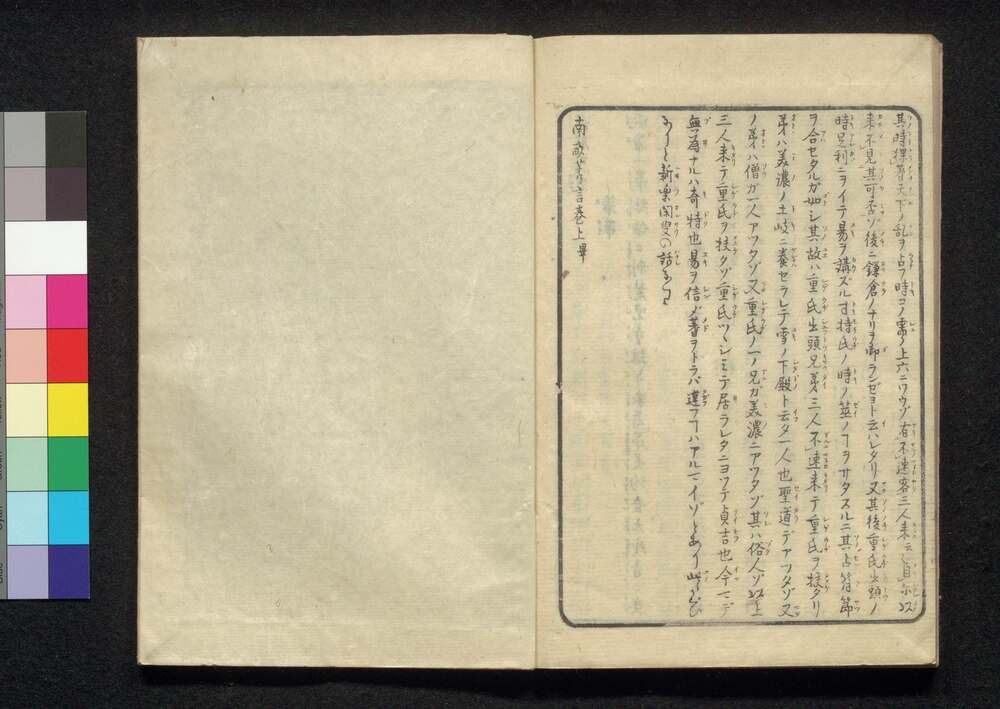 其時釋尊天下ノ乱ヲ占フ時コノ需ノ上六ニワウゾ有不速客三人来云〻貞永以
来不見其可否ゾ後ニ鎌倉ノナリヲ御ランゼヨト云ハレタリ又其後重氏出頭ノ
時足利ニヲイテ昜ヲ講ズル寸持氏ノ時ノ筮ノヿヲサタスルニ其占符節
ヲ合セタルガ如シ其故ハ重氏出頭兄弟三人不速来テ重氏ヲ扶タリ
弟ハ美濃ノ土岐ニ養セラレテ雪ノ下殿ト云タ一人也聖道デアツタゾ又
ノ弟ハ僧ガ一人アツタゾ又重氏ノ一ノ兄ガ美濃ニアツタゾ其ハ俗人ゾ以上
三人来テ重氏ヲ扶タゾ重氏ツヽシミテ居ラレタニヨツテ貞吉也今マデ
無為ナルハ奇特也昜ヲ信ジ蓍ヲトラバ違フヿハアルマイゾとあり
と新栗閑叟の話なり
南畝莠言巻上畢